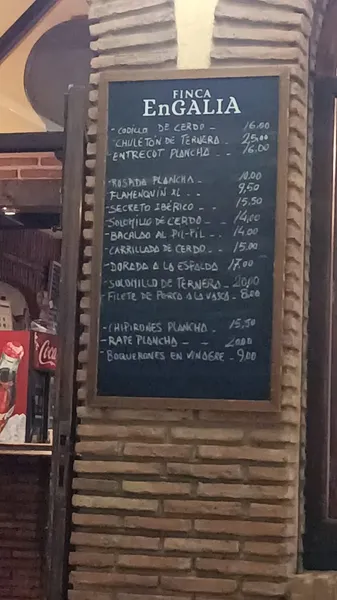 FINCA
EnGALIA
- CODILLO DE CERDO - 16,00
- CHULETÓN DE TERNERA . . 25,00
- ENTRECOT PLANCHA . . 16,00
- ROSADA PLANCHA - 10,00
FLAMENQUÍN XL . - 9,50
- SECRETO IBÉRICO - . 15,50
- SOLOMILLO DE CERDO - . 14,00
- BACALAO AL PIL-PIL . . 14,00
- CARRILLADA DE CERDO - . 15,00
- DORADA A LA ESPALDA 17,00
- SOLOMILLO DE TERNERA - 20,00
- FILETE DE A LA VASCA - 8,00
- CHIPIRONES PLANCHA . 15,50
- RAPE PLANCHA - - 20,00
- BOQUERONES EN VINAGRE . 9,00
Coca